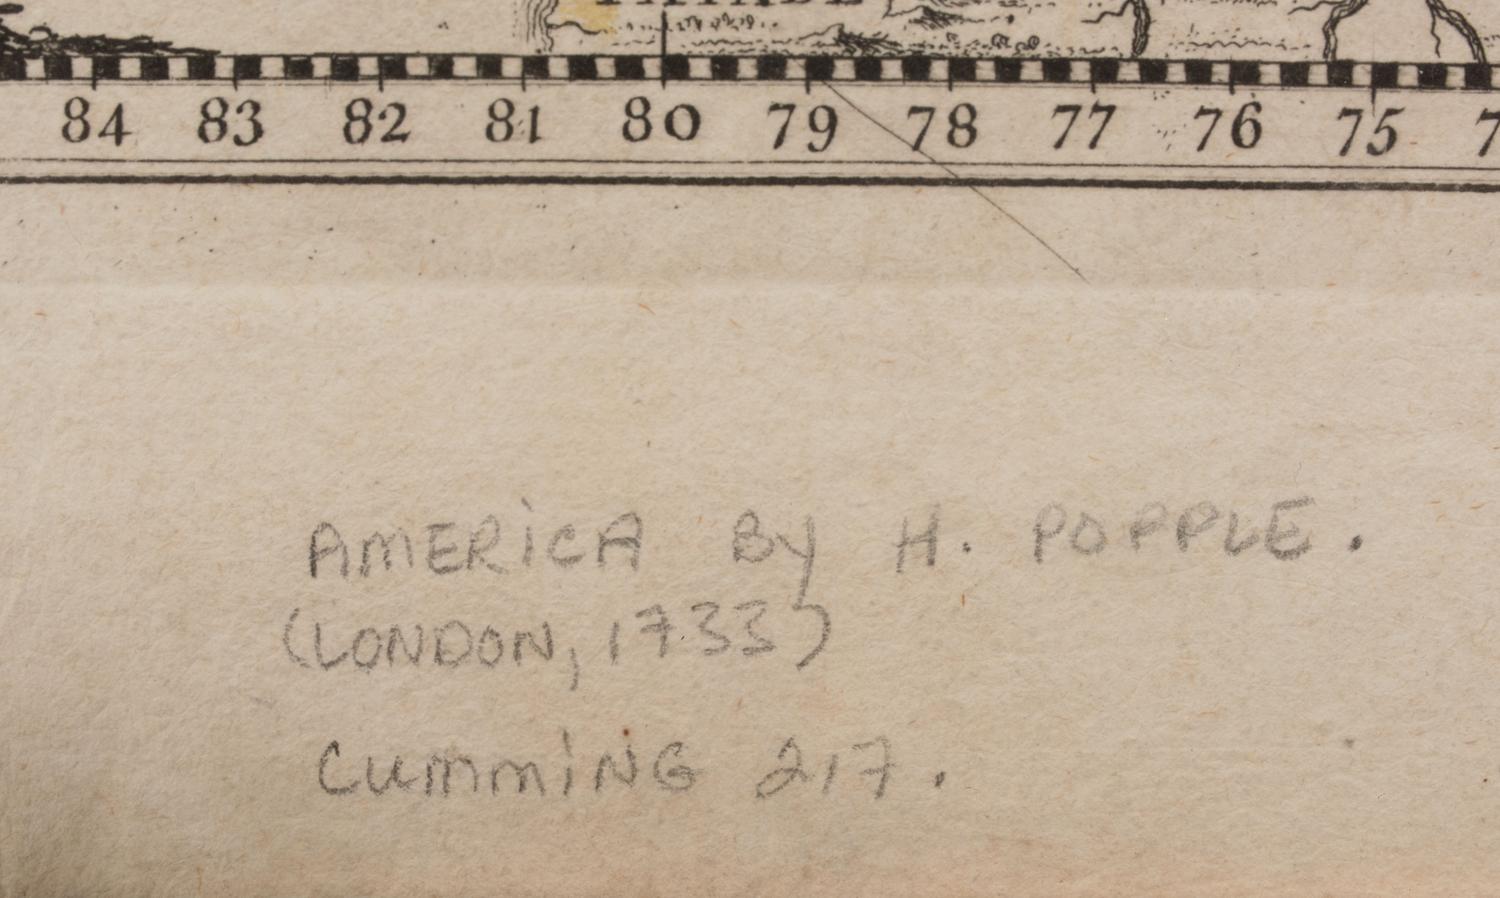 84 83 82 81 80 79 78 77 76 75
AMERICA BY H. POPPLE.
(LONDON, 1733)
CUMMING 217.